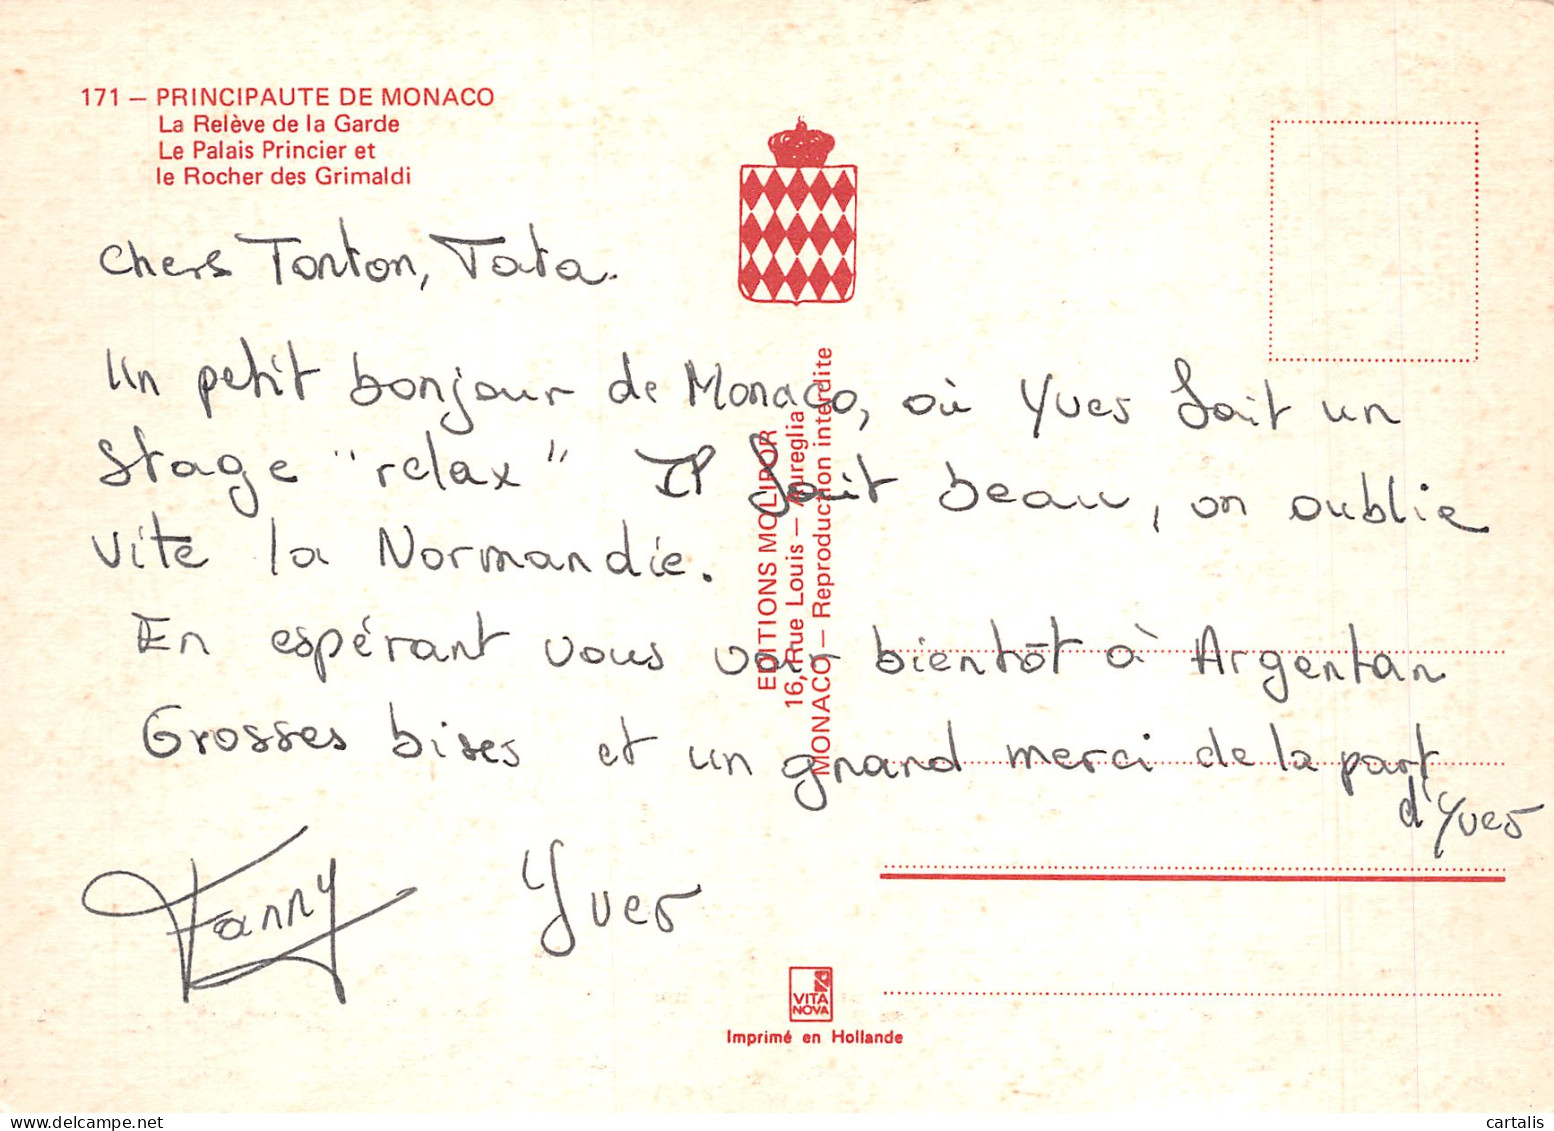 171 — PRINCIPAUTE DE MONACO
La Relève de la Garde
Le Palais Princier et
le Rocher des Grimaldi
Chers Tonton, Tata.
Un petit bonjour de Monaco, où Yves fait un
stage "relax" Il fait beau, on oublie
vite la Normandie.
En espérant vous voir bientôt à Argentan
Grosses bises et un grand merci de la part
d'Yves
Fanny Yves
EDITIONS MOLIPOR
16, Rue Louis — Aureglia
MONACO — Reproduction interdite
VITA
NOVA
Imprimé en Hollande
cartalis